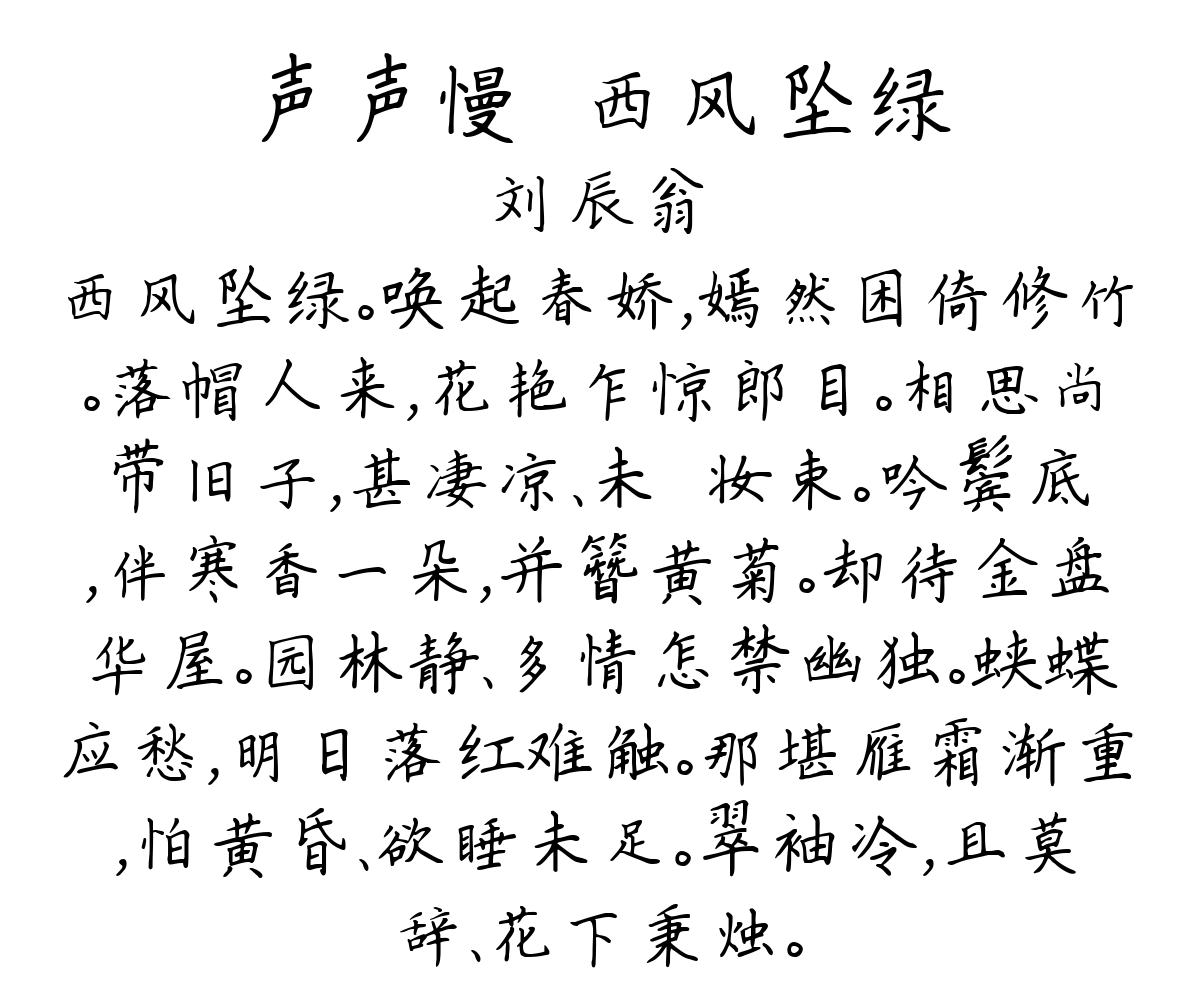 声声慢 西风坠绿
刘辰翁
西风坠绿。唤起春娇,嫣然困倚修竹
。落帽人来,花艳乍惊郎目。相思尚
带旧子,甚凄凉、未 妆束。吟鬓底
,伴寒香一朵,并簪黄菊。却待金盘
华屋。园林静、多情怎禁幽独。蛱蝶
应愁,明日落红难触。那堪雁霜渐重
,怕黄昏、欲睡未足。翠袖冷,且莫
辞、花下秉烛。